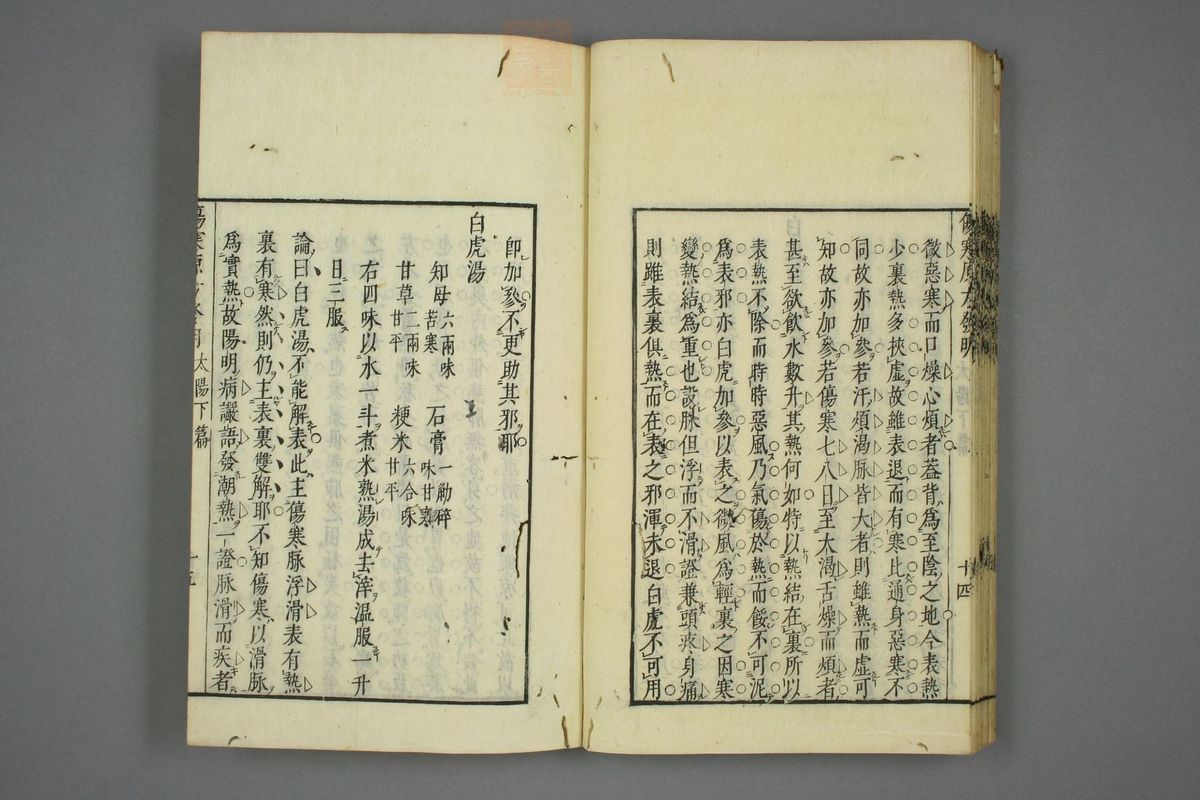 傷寒原方發明
十四
微惡寒而口燥心煩者蓋背爲至陰之地今表熱
少裏熱多挾虛故雖表退而有寒比通身惡寒不
同故亦加參若汗煩渴脉皆大者則雖熱而虛可
知故亦加參若傷寒七八日至大渴舌燥而煩者
甚至欲飮水數升其熱何如特以熱結在裏所以
表熱不除而時時惡風乃氣傷於熱而餒不可泥
爲表邪亦白虎加參以表之微風爲輕裏之因寒
變熱結爲重也設脉但浮而不滑證兼頭疼身痛
則雖表裏俱熱而在表之邪渾未退白虎不可用
卽加參不更助其邪耶
白虎湯
知母六兩味苦寒 石膏一觔碎味甘寒
甘草二兩味甘平 粳米六合味甘平
右四味以水一斗煮米熟湯成去滓溫服一升
日三服
論曰白虎湯不能解表此主傷寒脉浮滑表有熱
裏有寒然則仍主表裏雙解耶不知傷寒以滑脉
爲實熱故陽明病讝語發潮熱一證脉滑而疾者
太陽下篇